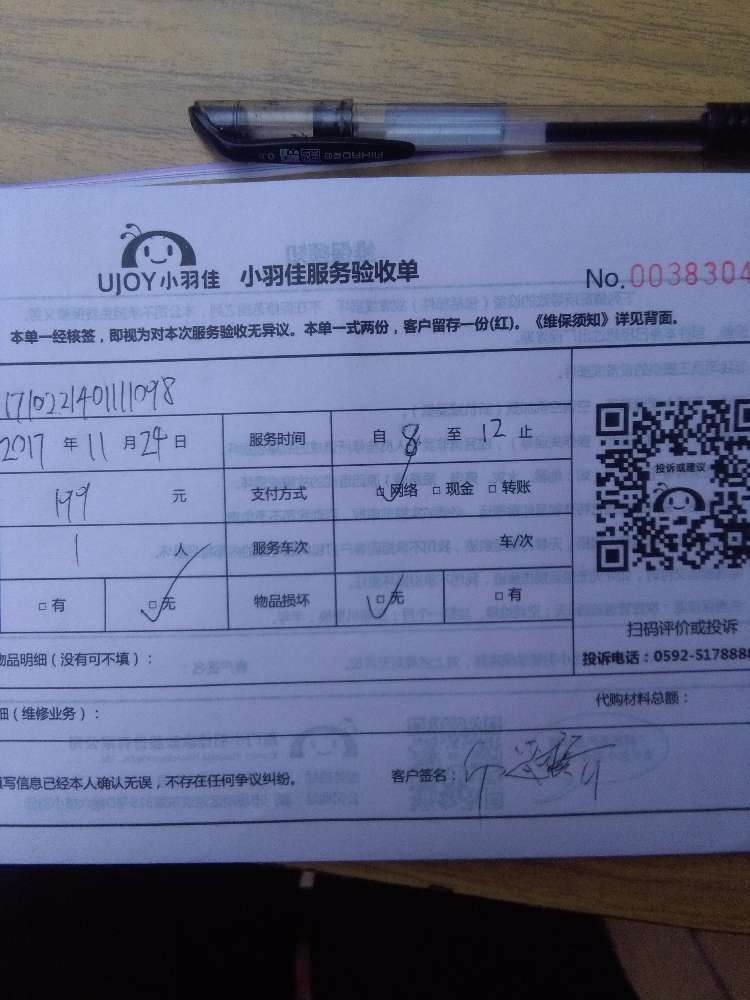 UJOY小羽佳 小羽佳服务验收单 No. 0038304
本单一经核签，即视为对本次服务验收无异议。本单一式两份，客户留存一份(红)。《维保须知》详见背面。
1710221401111098
2017 年 11 月 24 日 服务时间 自 8 至 12 止
199 元 支付方式 □网络 □现金 □转账
1 人 服务车次 车/次
□有 □无 物品损坏 □无 □有
投诉或建议
扫码评价或投诉
投诉电话：0592-5178888
物品明细（没有可不填）：
代购材料总额：
细（维修业务）：
填写信息已经本人确认无误，不存在任何争议纠纷。 客户签名：